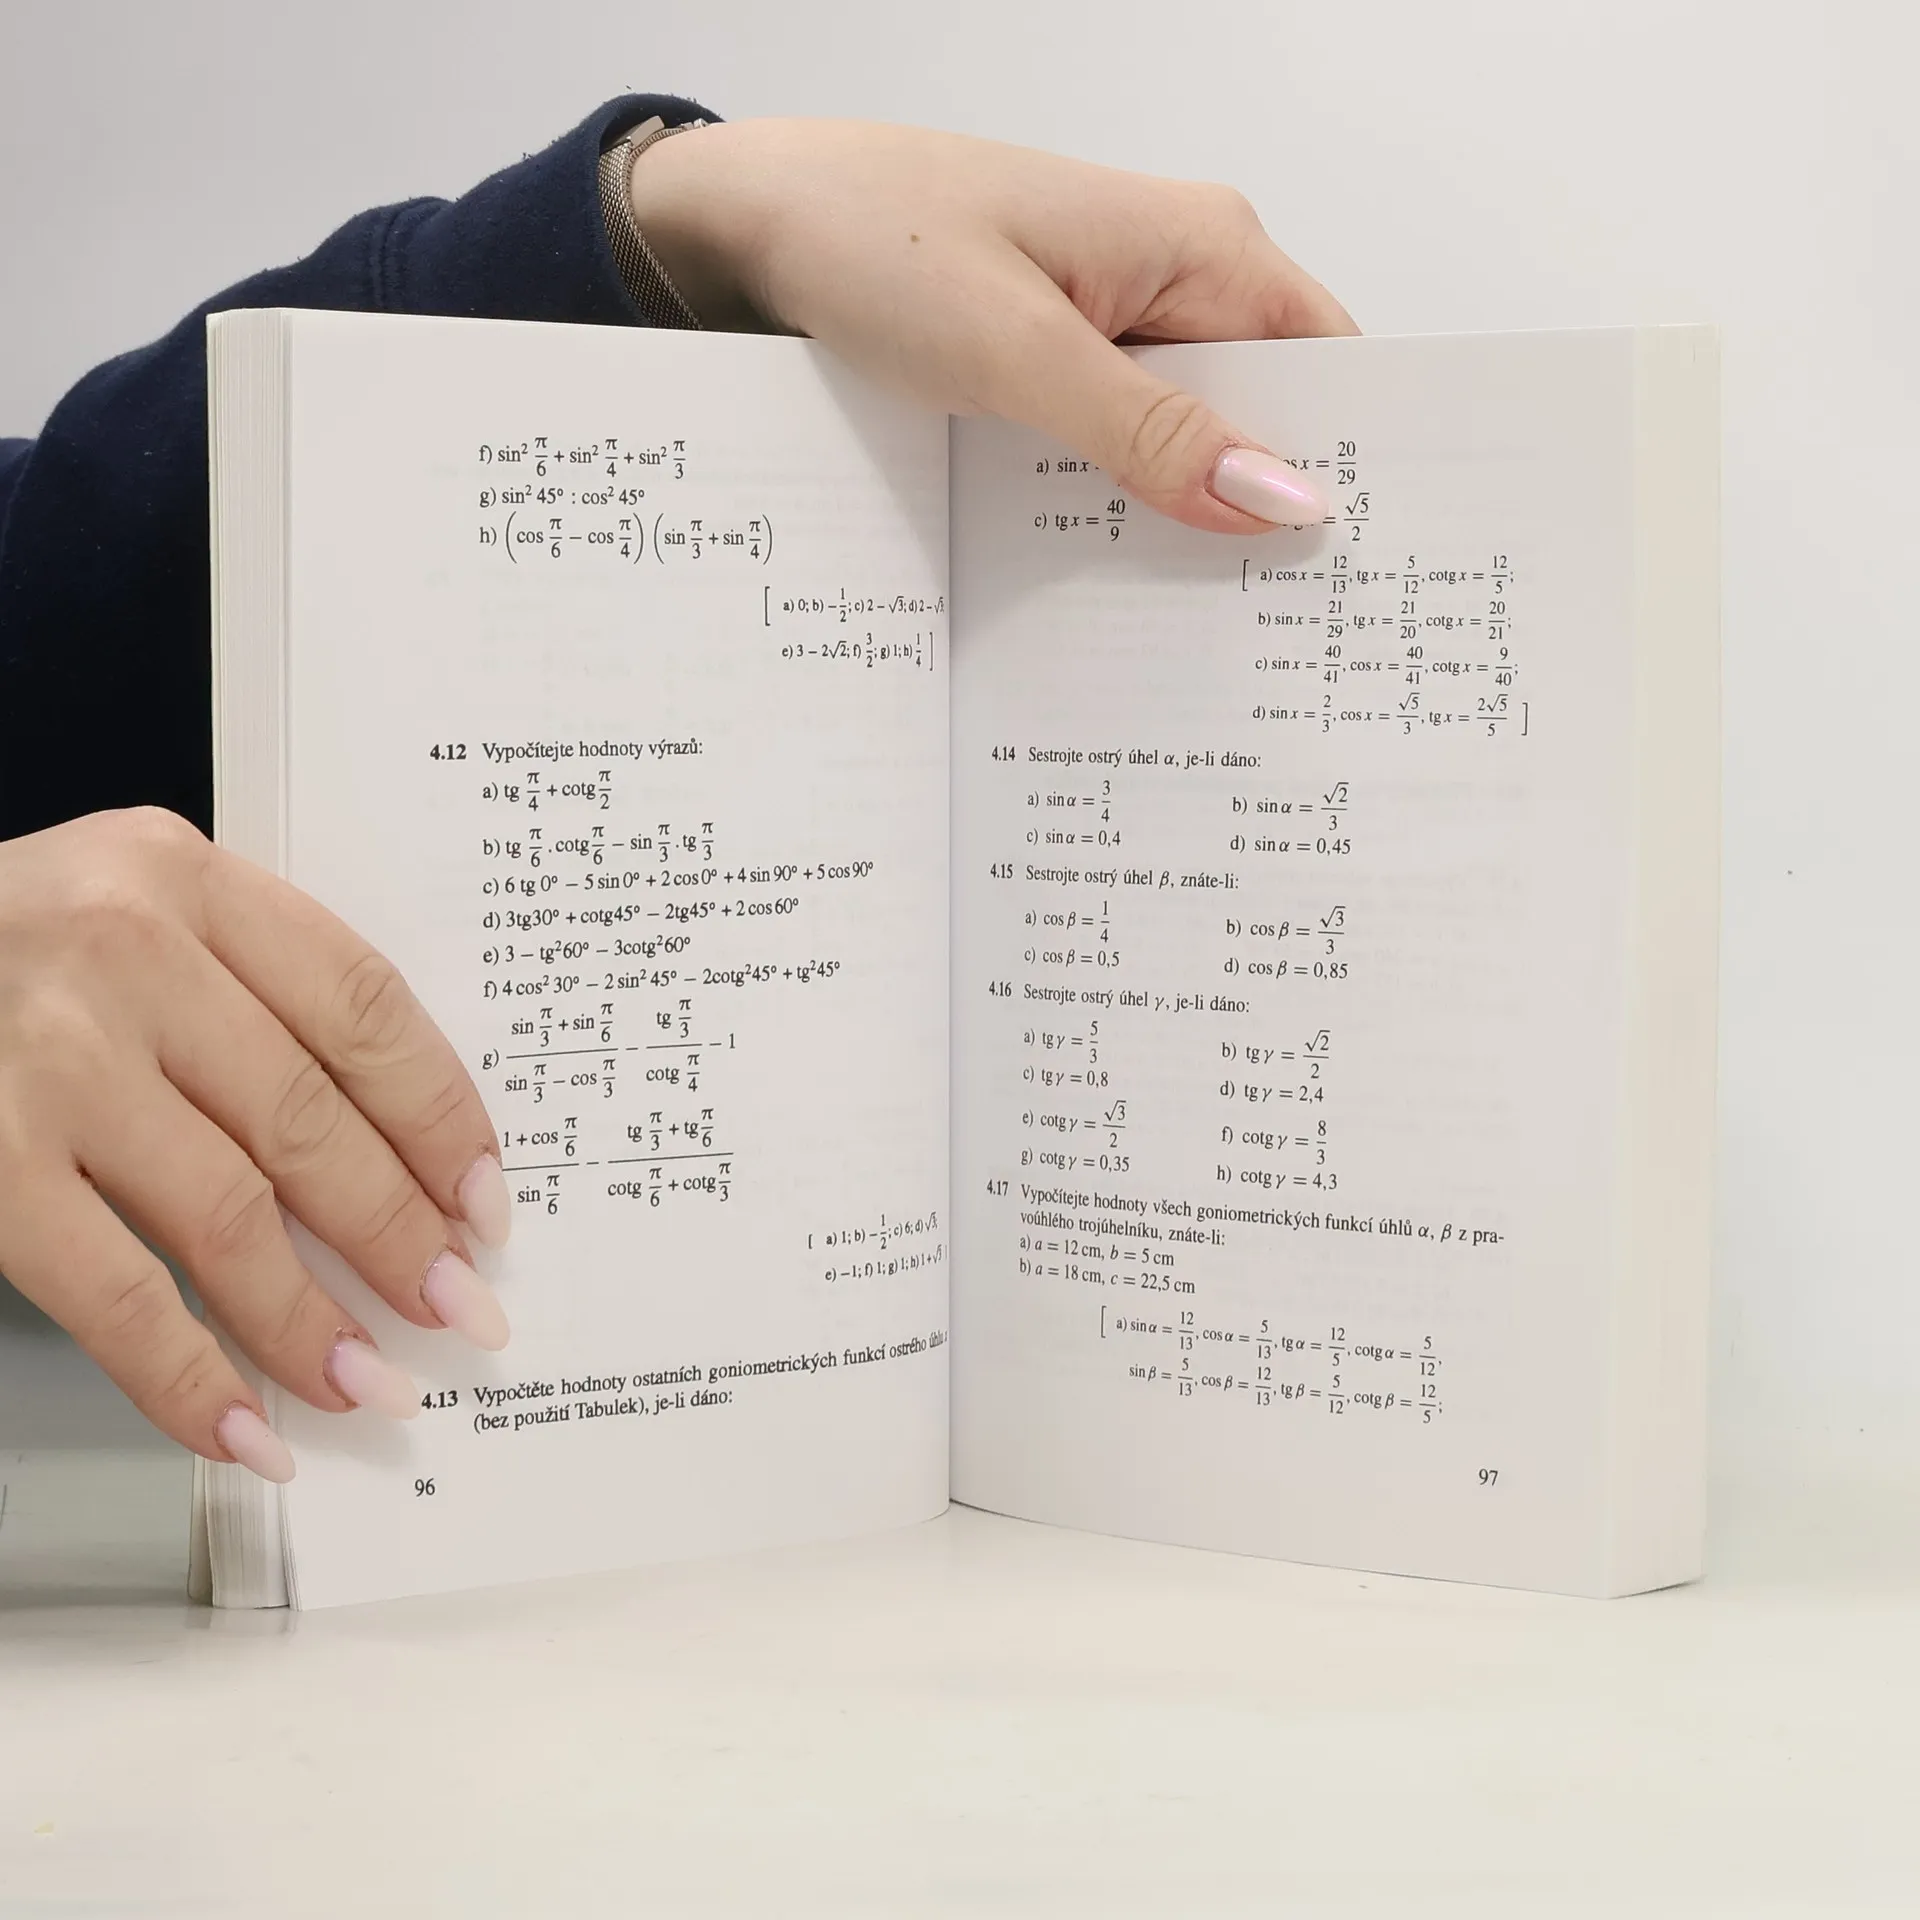 f) sin² π/6 + sin² π/4 + sin² π/3
g) sin² 45° : cos² 45°
h) (cos π/6 − cos π/4) (sin π/3 + sin π/4)
[ a) 0; b) −1/2; c) 2 − √3; d) 2 − √3;
e) 3 − 2√2; f) 3/2; g) 1; h) 1/4 ]
4.12 Vypočítejte hodnoty výrazů:
a) tg π/4 + cotg π/2
b) tg π/6 . cotg π/6 − sin π/3 . tg π/3
c) 6 tg 0° − 5 sin 0° + 2 cos 0° + 4 sin 90° + 5 cos 90°
d) 3tg30° + cotg45° − 2tg45° + 2 cos 60°
e) 3 − tg²60° − 3cotg²60°
f) 4 cos² 30° − 2 sin² 45° − 2cotg²45° + tg²45°
g) (sin π/3 + sin π/6)/(sin π/3 − cos π/3) − (tg π/3)/(cotg π/4) − 1
(1 + cos π/6)/(sin π/6) − (tg π/3 + tg π/6)/(cotg π/6 + cotg π/3)
[ a) 1; b) −1/2; c) 6; d) √3;
e) −1; f) 1; g) 1; h) 1+√3 ]
4.13 Vypočtěte hodnoty ostatních goniometrických funkcí ostrého úhlu x
(bez použití Tabulek), je-li dáno:
96
a) sin x x = 20/29
c) tg x = 40/9 = √5/2
[ a) cos x = 12/13, tg x = 5/12, cotg x = 12/5;
b) sin x = 21/29, tg x = 21/20, cotg x = 20/21;
c) sin x = 40/41, cos x = 40/41, cotg x = 9/40;
d) sin x = 2/3, cos x = √5/3, tg x = 2√5/5 ]
4.14 Sestrojte ostrý úhel α, je-li dáno:
a) sin α = 3/4 b) sin α = √2/3
c) sin α = 0,4 d) sin α = 0,45
4.15 Sestrojte ostrý úhel β, znáte-li:
a) cos β = 1/4 b) cos β = √3/3
c) cos β = 0,5 d) cos β = 0,85
4.16 Sestrojte ostrý úhel γ, je-li dáno:
a) tg γ = 5/3 b) tg γ = √2/2
c) tg γ = 0,8 d) tg γ = 2,4
e) cotg γ = √3/2 f) cotg γ = 8/3
g) cotg γ = 0,35 h) cotg γ = 4,3
4.17 Vypočítejte hodnoty všech goniometrických funkcí úhlů α, β z pra-
voúhlého trojúhelníku, znáte-li:
a) a = 12 cm, b = 5 cm
b) a = 18 cm, c = 22,5 cm
[ a) sin α = 12/13, cos α = 5/13, tg α = 12/5, cotg α = 5/12,
sin β = 5/13, cos β = 12/13, tg β = 5/12, cotg β = 12/5;
97